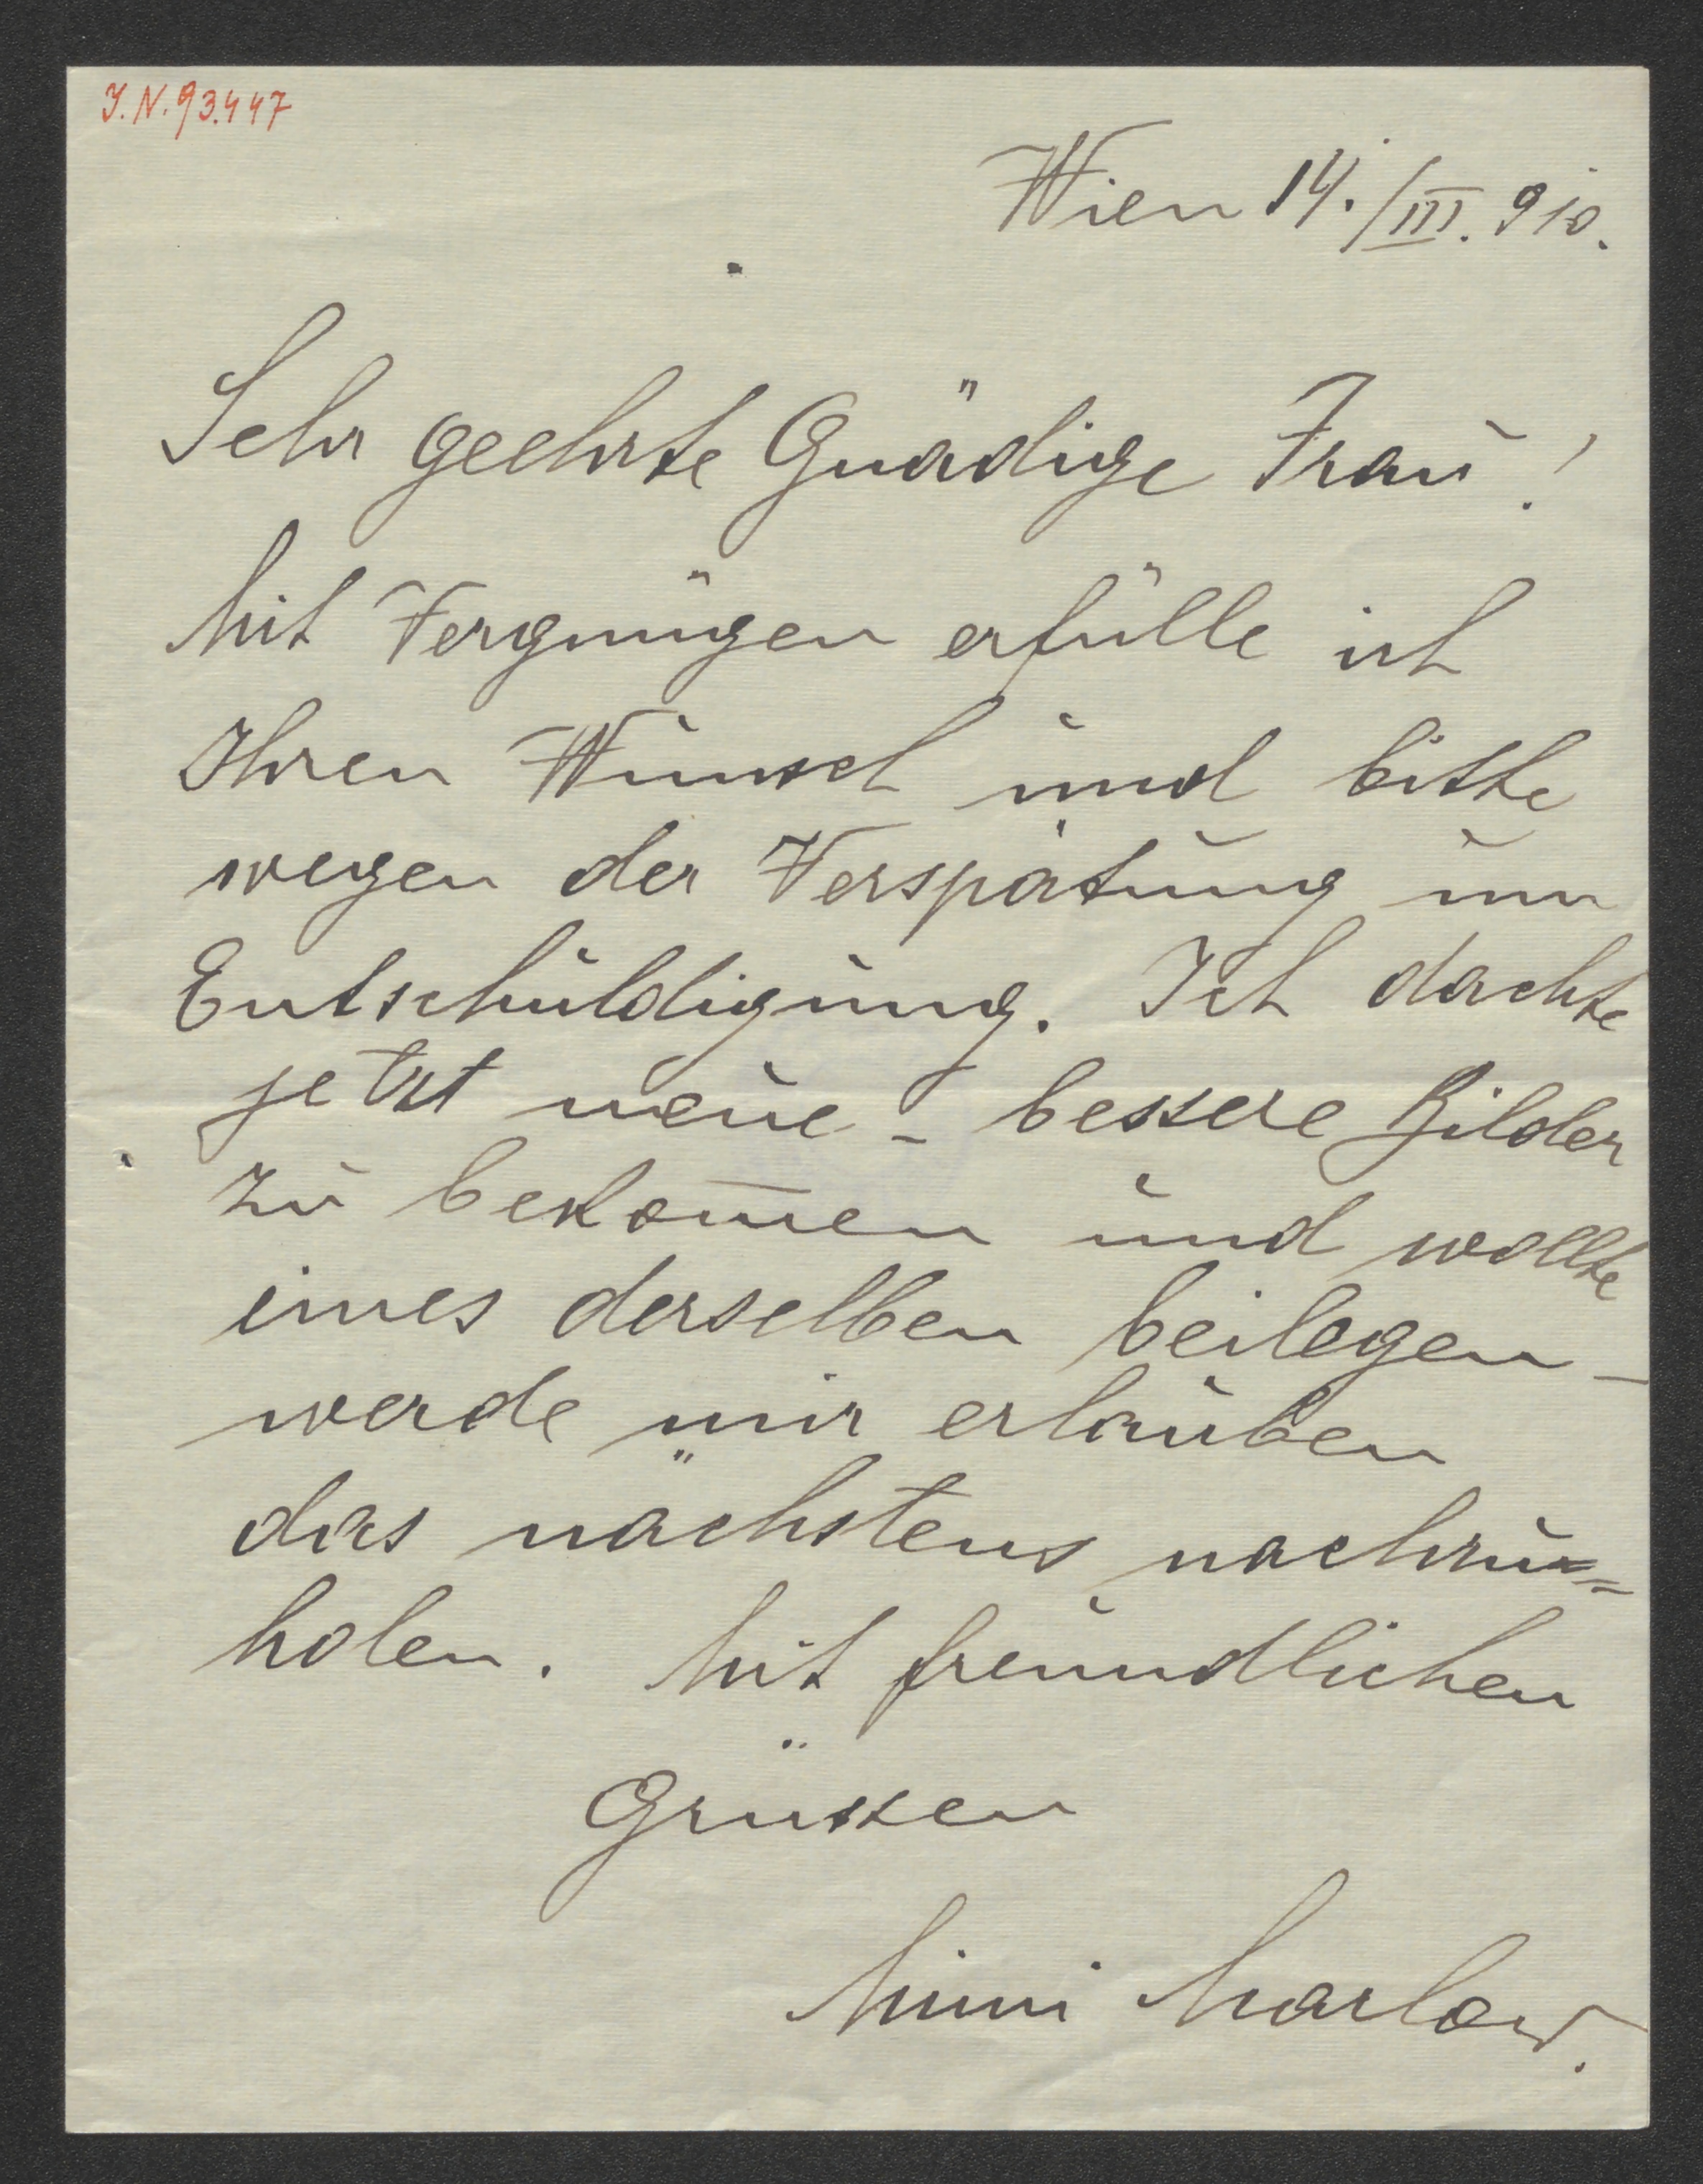 J.N. 93.447
Wien 14./III. 910.
Sehr geehrte Gnädige Frau!
Mit Vergnügen erfülle ich
Ihren Wunsch und bitte
wegen der Verspätung um
Entschuldigung. Ich dachte
jetzt neue - bessere Bilder
zu bekom̅en und wollte
eines derselben beilegen -
werde mir erlauben
das nächstens nachzu=
holen. Mit freundlichen
Grüssen
Mimi Marlow.